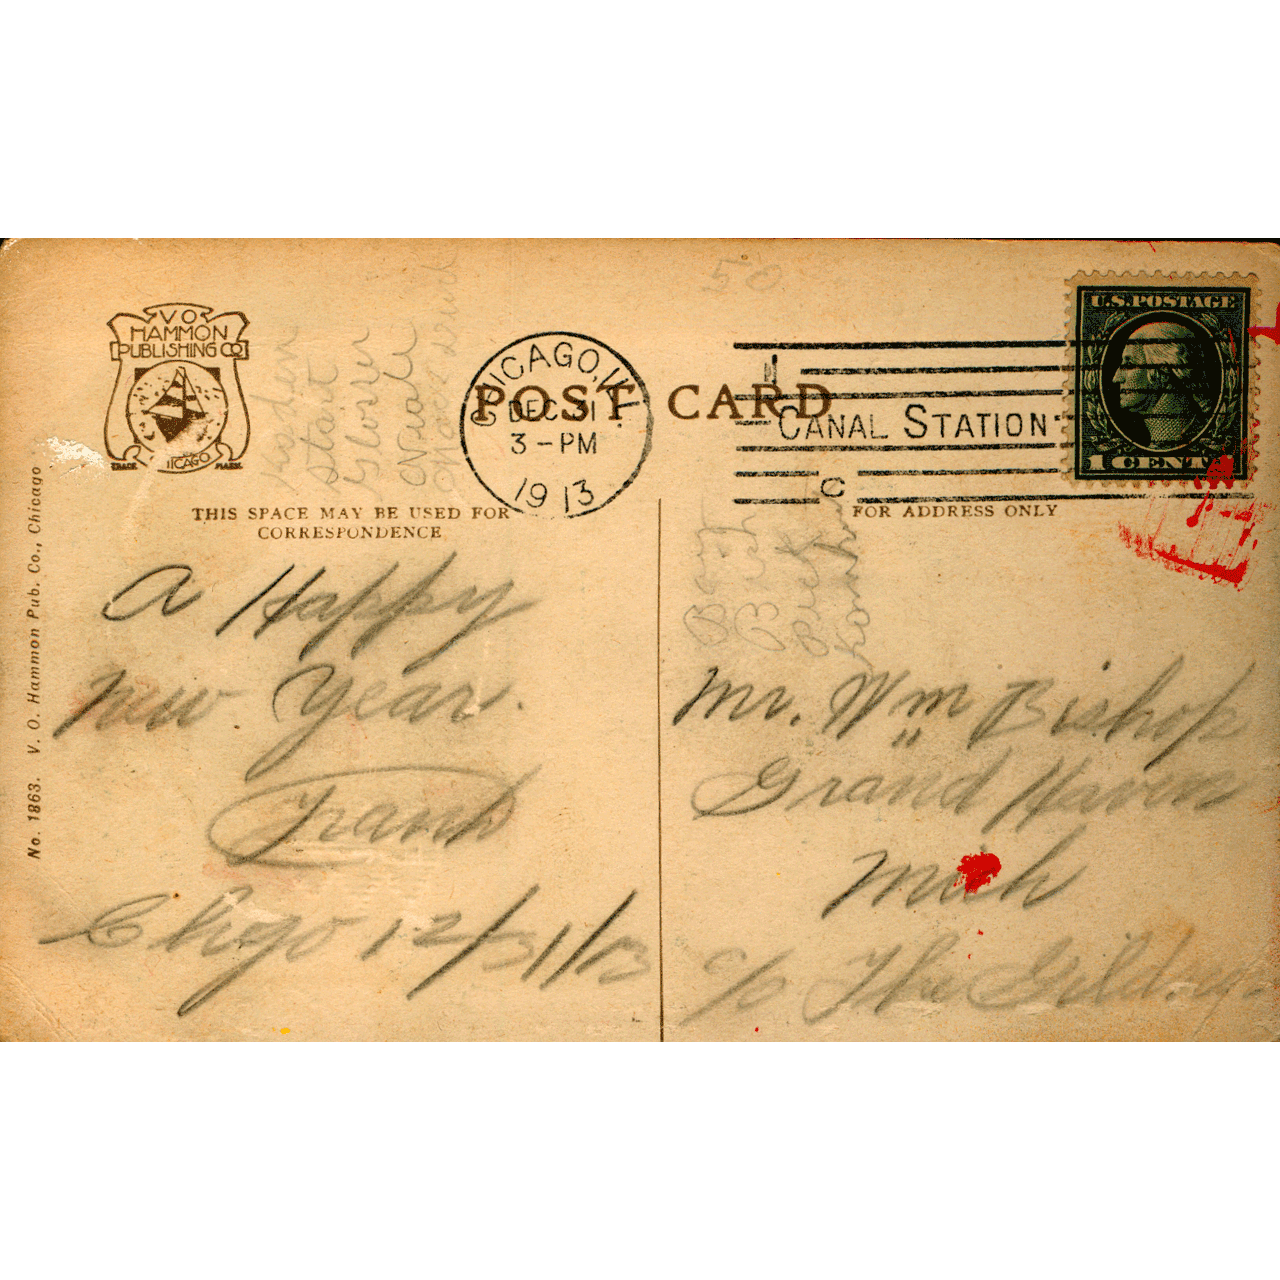 50
V O
HAMMON
PUBLISHING CO
TRADE CHICAGO MARK
CHICAGO, ILL.
DEC 31
3 - PM
1913
POST CARD
CANAL STATION
C
U.S. POSTAGE
1 CENT
THIS SPACE MAY BE USED FOR
CORRESPONDENCE
FOR ADDRESS ONLY
A Happy
New Year.
Frank
Chgo 12/31/13
Mr. Wm Bishop
Grand Haven
Mich
c/o The Gildner
No. 1863. V. O. Hammon Pub. Co., Chicago
start
Glover